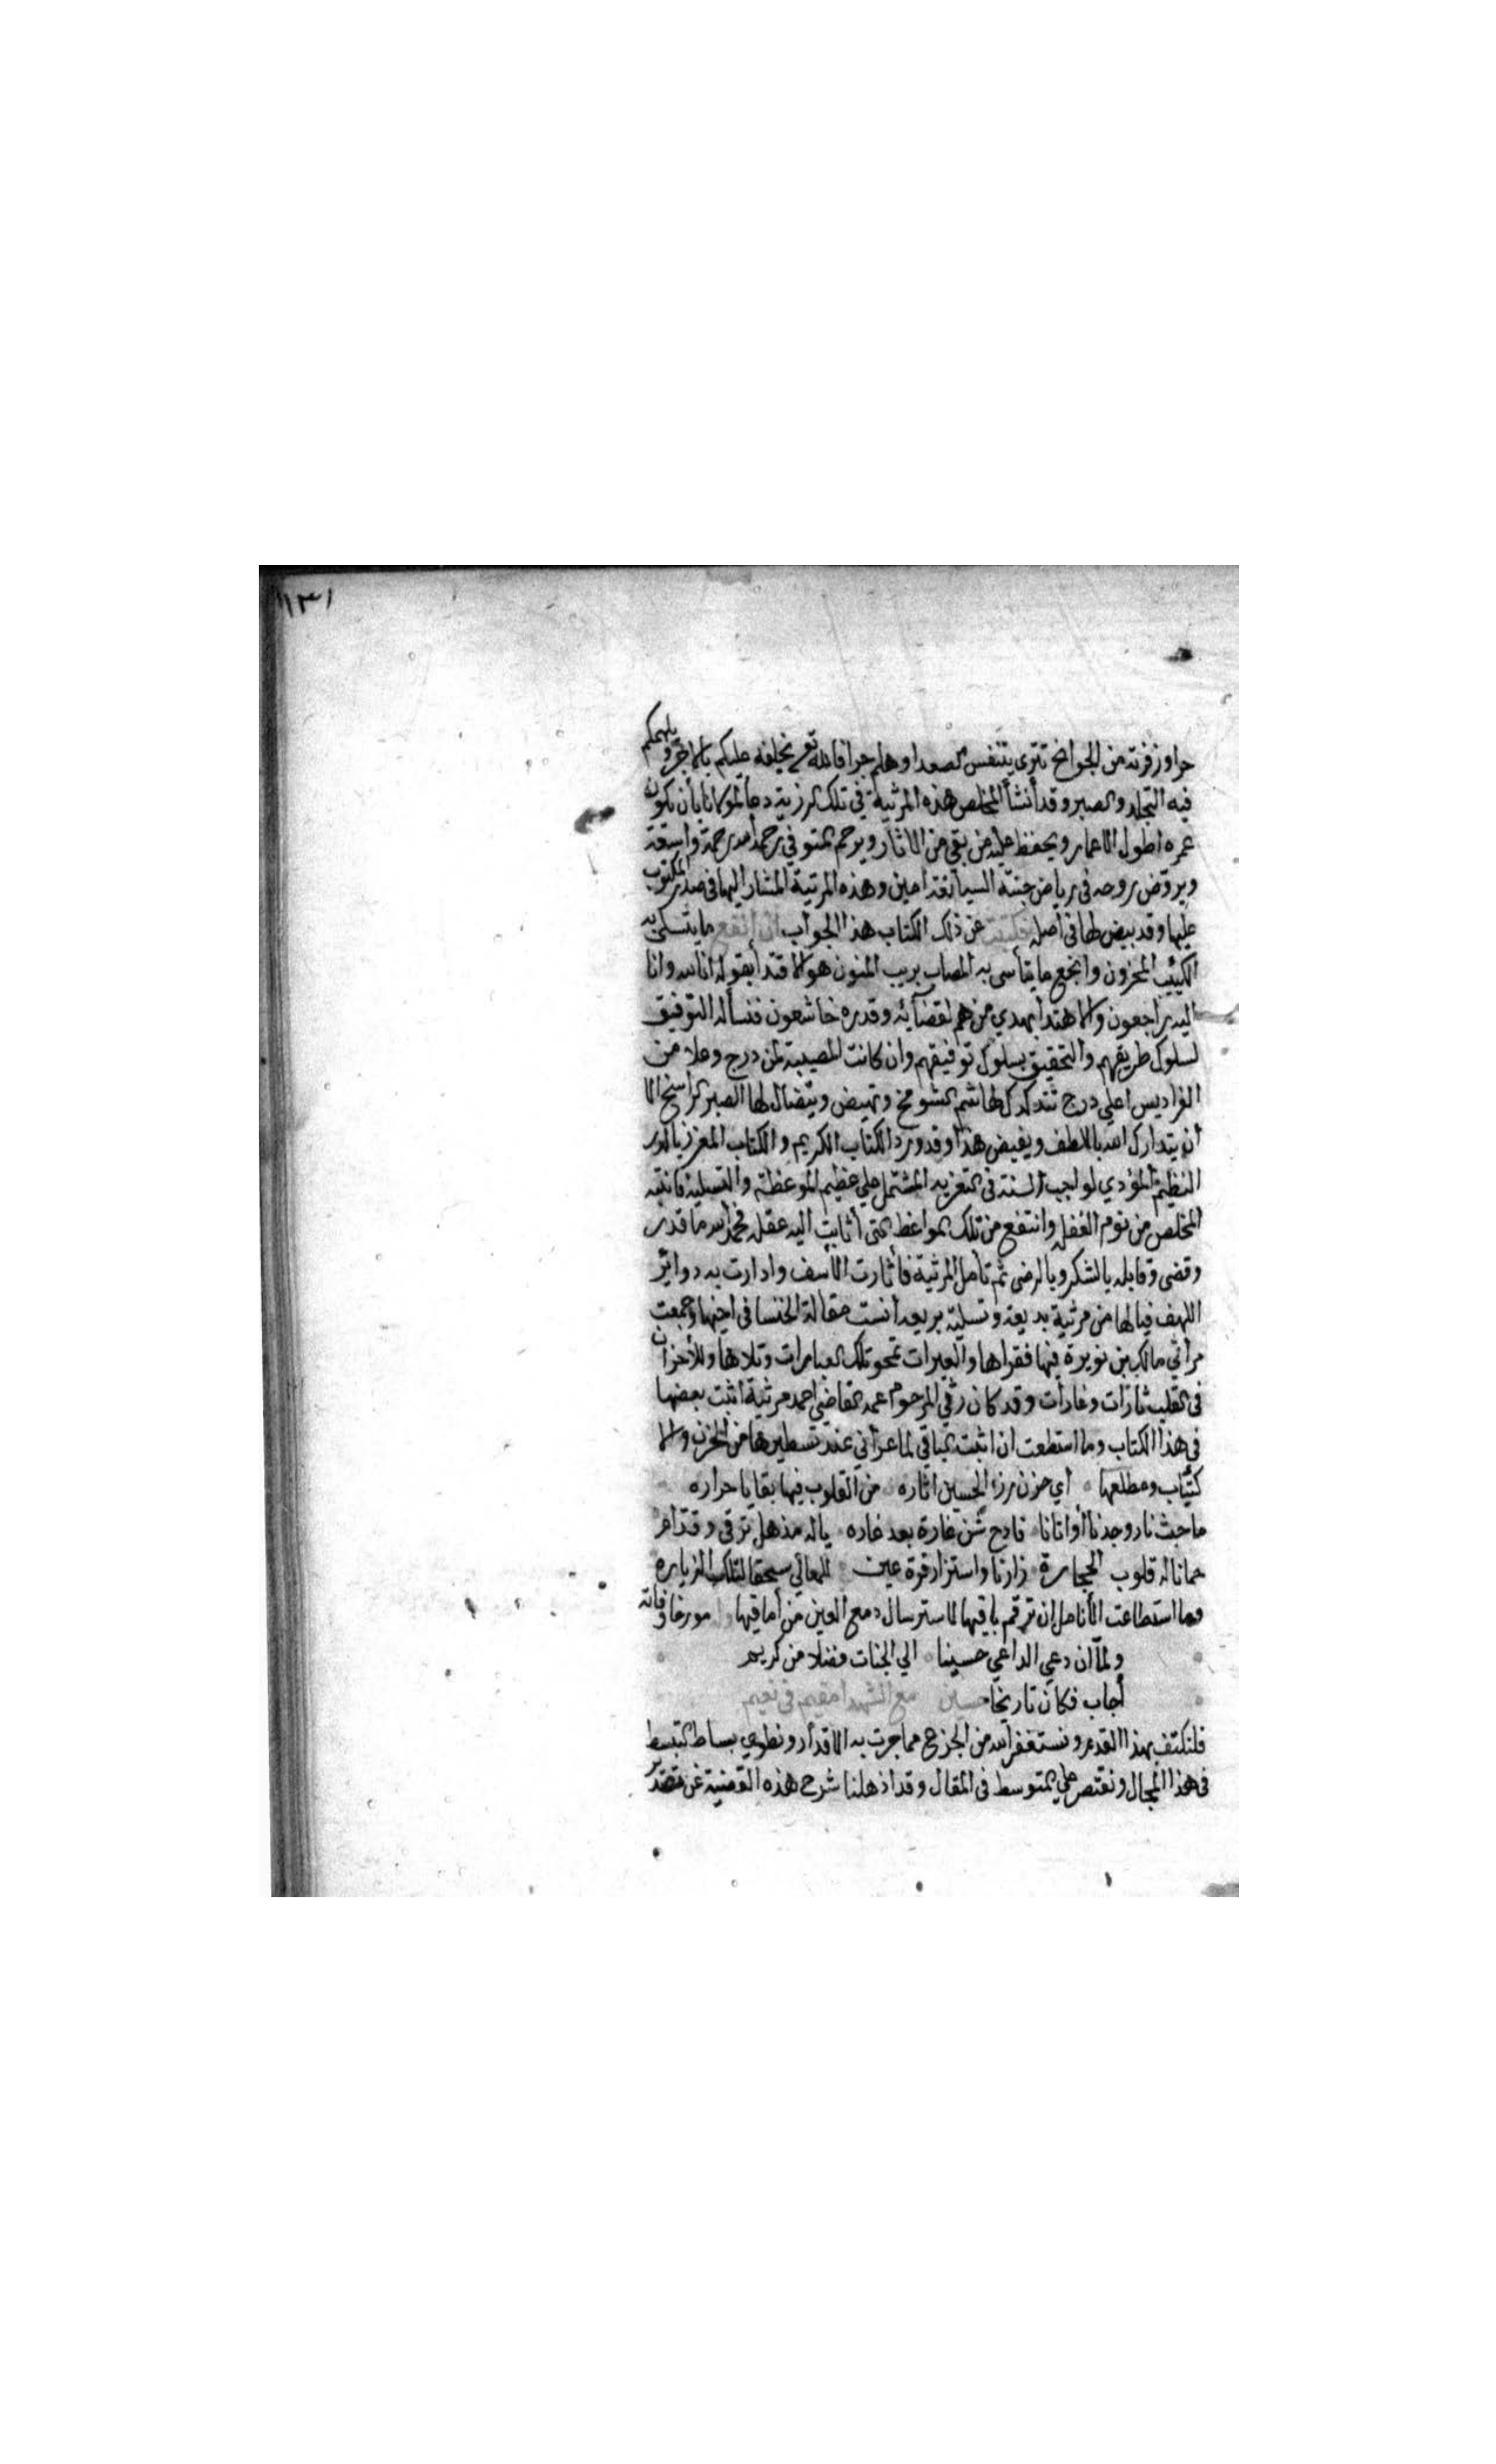 ١٣١
حرا وزفرته من الجوانح تترى بتنفس الصعدا وهلم جرا فالله تعالى يخلفه عليكم بالاجر ويلهمكم
فيه التجلد والصبر وقد أنشأ المخلص هذه المرثية في تلك الرزية دعا لمولانا بأن يكون
عمره اطول الاعمار ويحفظ عليه من بقي من الاثار ويرحم المتوفي برحمة الله رحمة واسعة
ويروض روحه في رياض جنته اليانعة امين وهذه المرثية المشار اليها في صدر المكتوب
عليها وقد بيض لها في أصله فكتبت عن ذلك الكتاب هذا الجواب ان أنفع ما يتسلى به
الكئيب المحزون وانجع ما يتأسى به المصاب بريب المنون هو الاقتدا بقوله انا لله وانا
اليه راجعون والاهتدا بهدي من هم لقضائه وقدره خاشعون فنسأله التوفيق
لسلوك طريقهم والتحقيق بسلوك توفيقهم وان كانت المصيبة لمن درج وعلا من
الفراديس اعلى درج تتدكدك لها شم الشوامخ وتهيض ويتضال لها الصبر الراسخ الا
أن يتدارك الله باللطف ويفيض هذا وقد ورد الكتاب الكريم والكتاب المعزز بالدر
النظيم المؤدي لواجب السنة في التعزيه المشتمل على عظيم الموعظة والتسليه فانتبه
المخلص من نوم الغفله وانتفع من تلك المواعظ التي أثابت اليه عقله فحمد الله ما قدر
وقضى وقابله بالشكر وبالرضى ثم تأمل المرثية فأثارت الأسف وادارت به دوائر
اللهف فيا لها من مرثية بديعة وتسلية بريعه أنست مقالة الخنسا في اخيها وجمعت
مراثي مالك بن نويرة فيها فقراها والعبرات تمحو تلك العبارات وتلاها وللأحزان
في القلب ثارات وغارات وقد كان رثى المرحوم عمه القاضي احمد مرثية اثبت بعضها
في هذا الكتاب وما استطعت ان اثبت الباقي لما عراني عند تسطيرها من الحزن والا
كتئاب ومطلعها أي حزن رزء الحسين اثاره من القلوب فيها بقايا حراره
ما حبت نار وجدنا أو اتانا فادح شن غارة بعد غاره ياله مذهل ترقى وقد أم
حمانا له قلوب الحجارة زارنا واستزار قرة عين للمعالي سحقا لتلك الزياره
وما استطاعت الأنامل ان ترقم باقيها لاسترسال دمع العين من أماقيها مورخا وفاته
ولما ان دعي الداعي حسينا الي الجنات فضلا من كريم
أجاب فكان تاريخا حسين مع الشهدا مقيم في نعيم
فلنكتف بهذا القدر ونستغفر الله من الجزع مما جرت به الاقدار ونطوي بساط التبسط
في هذا المجال ونقتصر على المتوسط في المقال وقد اذهلنا شرح هذه القضية عن